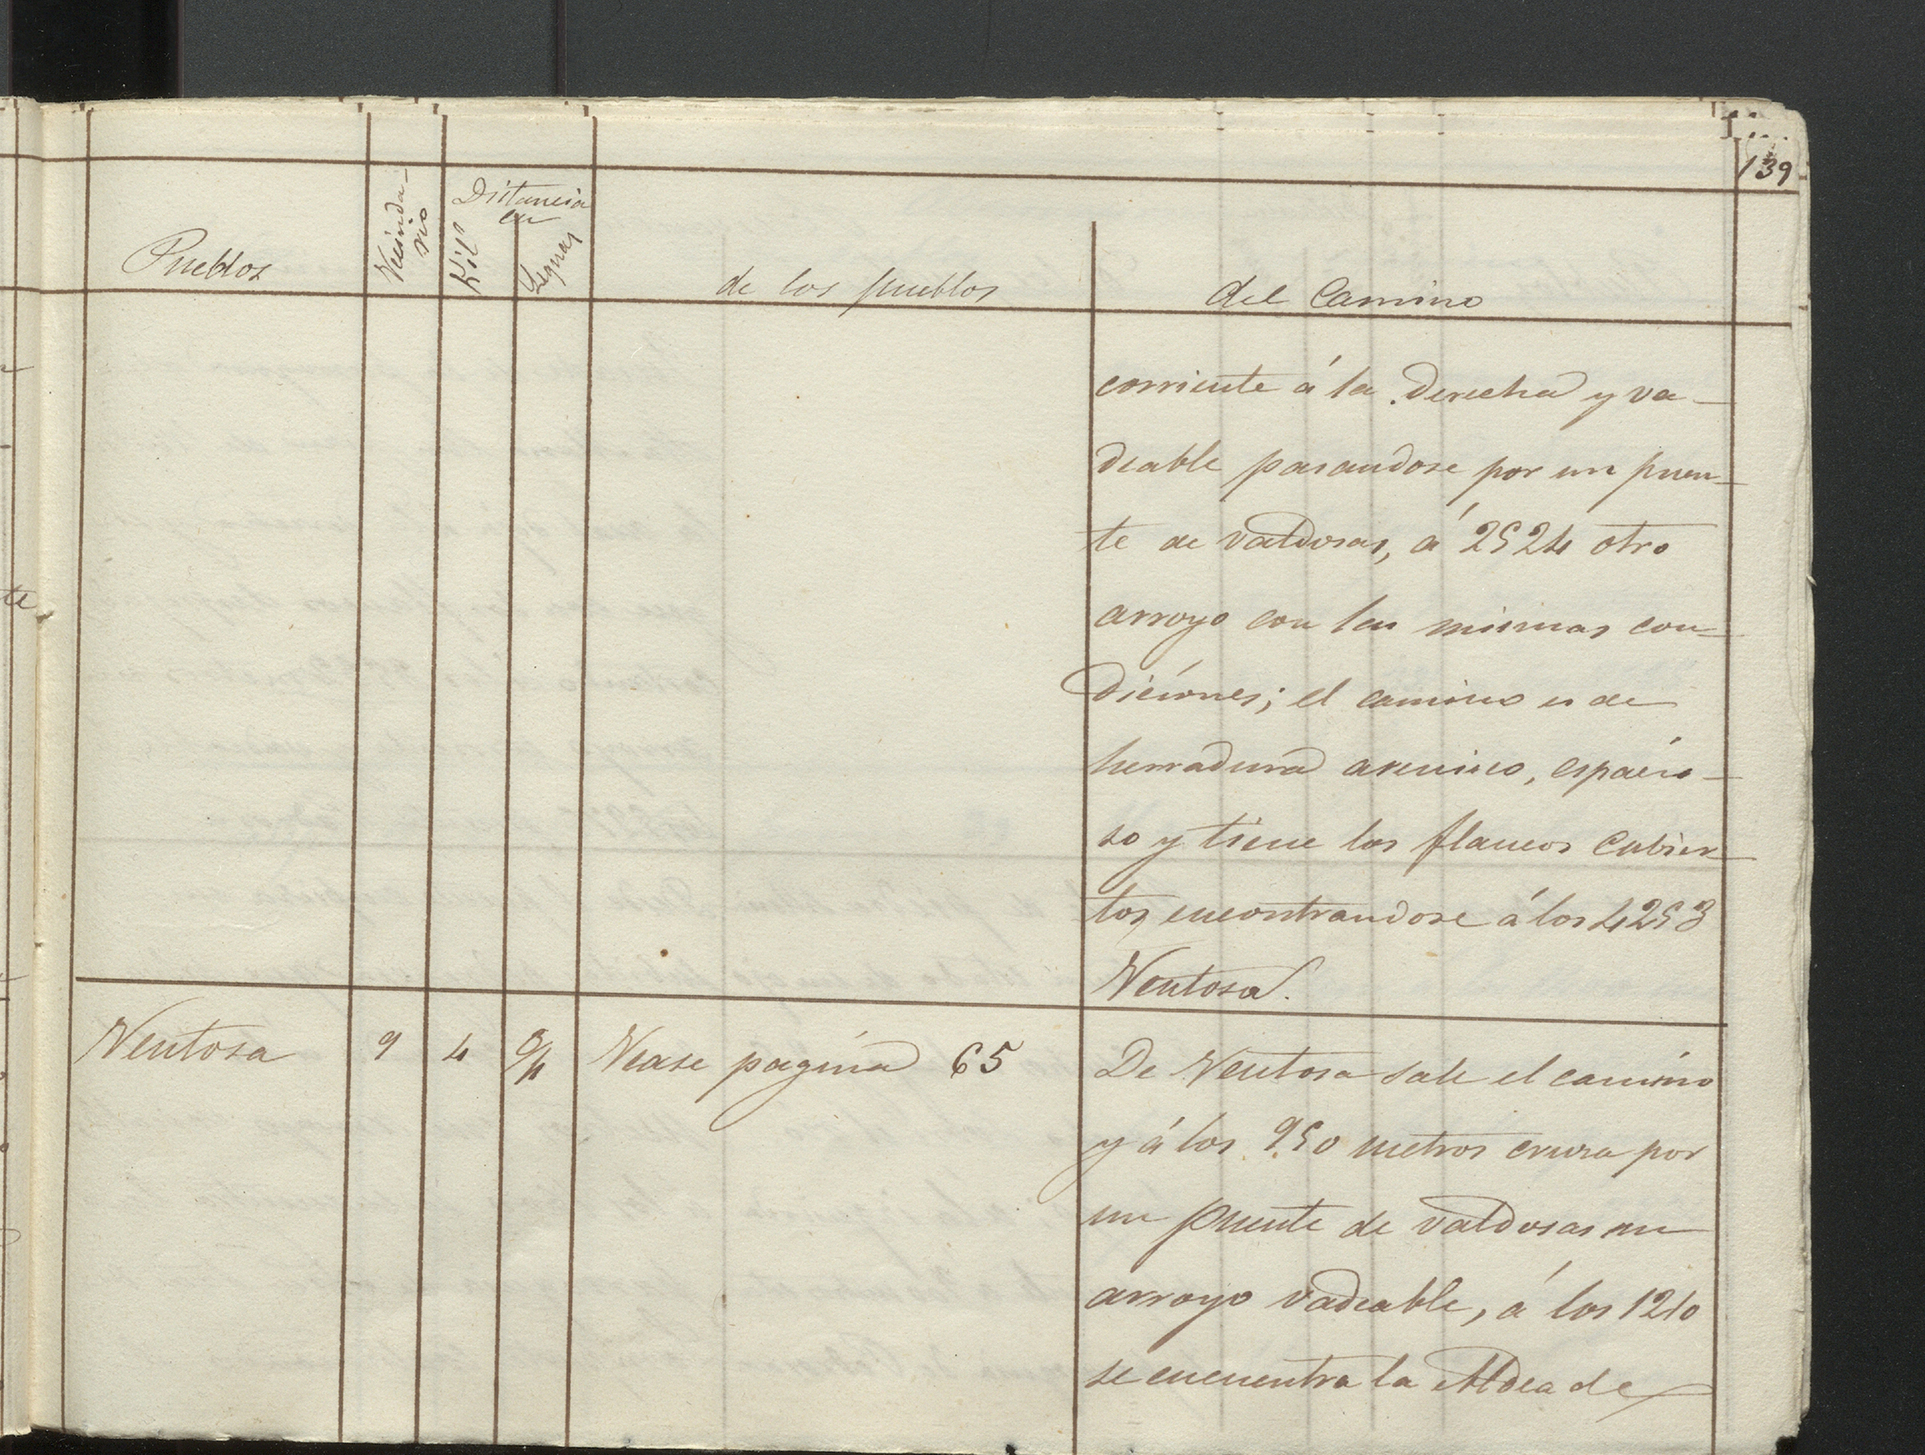 139
Pueblos
Vecinda-
rio
Distancia
en
Kil.s
Leguas
de los pueblos
del Camino
corriente á la derecha y va-
deable pasandose por un puen-
te de valdosas, á 2524 otro
arroyo con las mismas con-
diciones; el camino es de
herradura arenisco, espacio-
so y tiene los flancos cubier-
tos encontrandose á los 4253
Ventosa.
Ventosa 9 4 Vease pagina 65
De Ventosa sale el camino
y á los 950 metros cruza por
un puente de valdosas un
arroyo vadeable, á los 1240
se encuentra la Aldea de